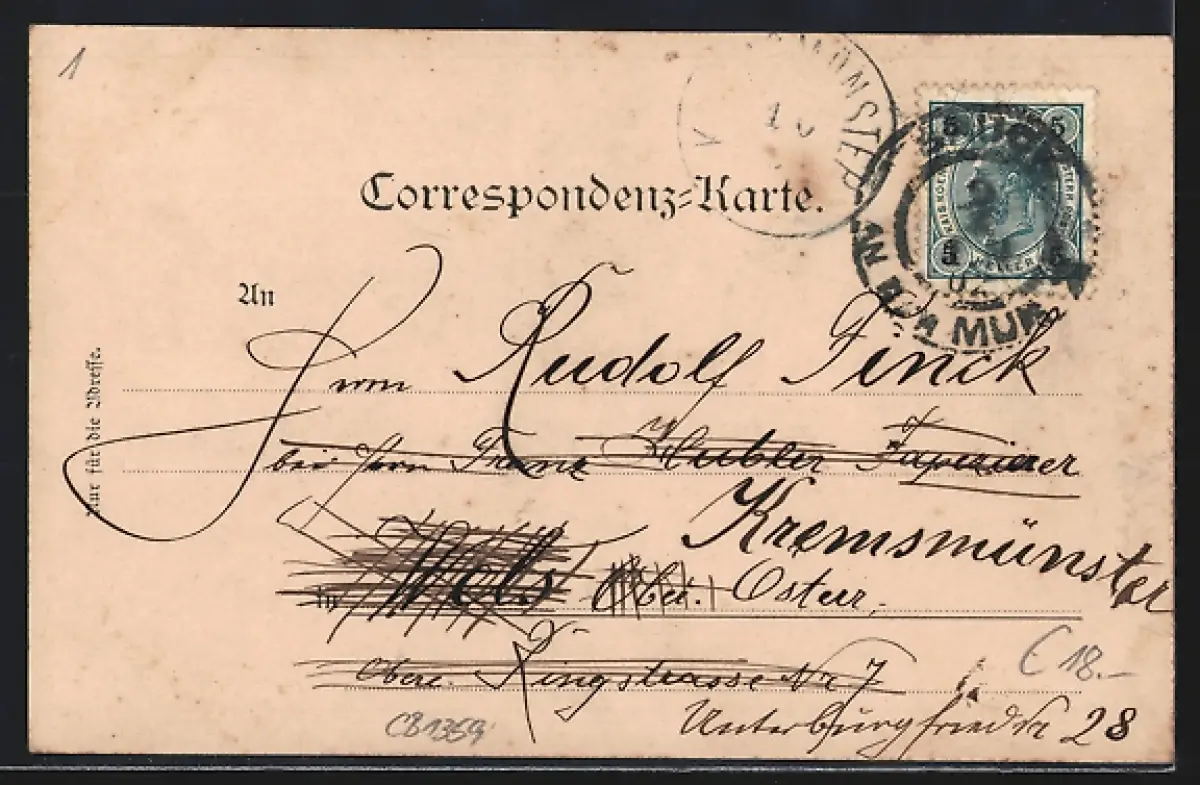 1
MÜNSTER
10
5 5
5 5
BRUCK
AN DER MUR
Correspondenz-Karte.
An
Nur für die Adresse.
Herrn Rudolf Finck
bei Herrn Franz Hubler Tapezierer
Kremsmünster
in Wels Ober. Östur.
Obere Ringstrasse Nr 7
€ 18.-
Unterburgfried Nr 28
CB1359